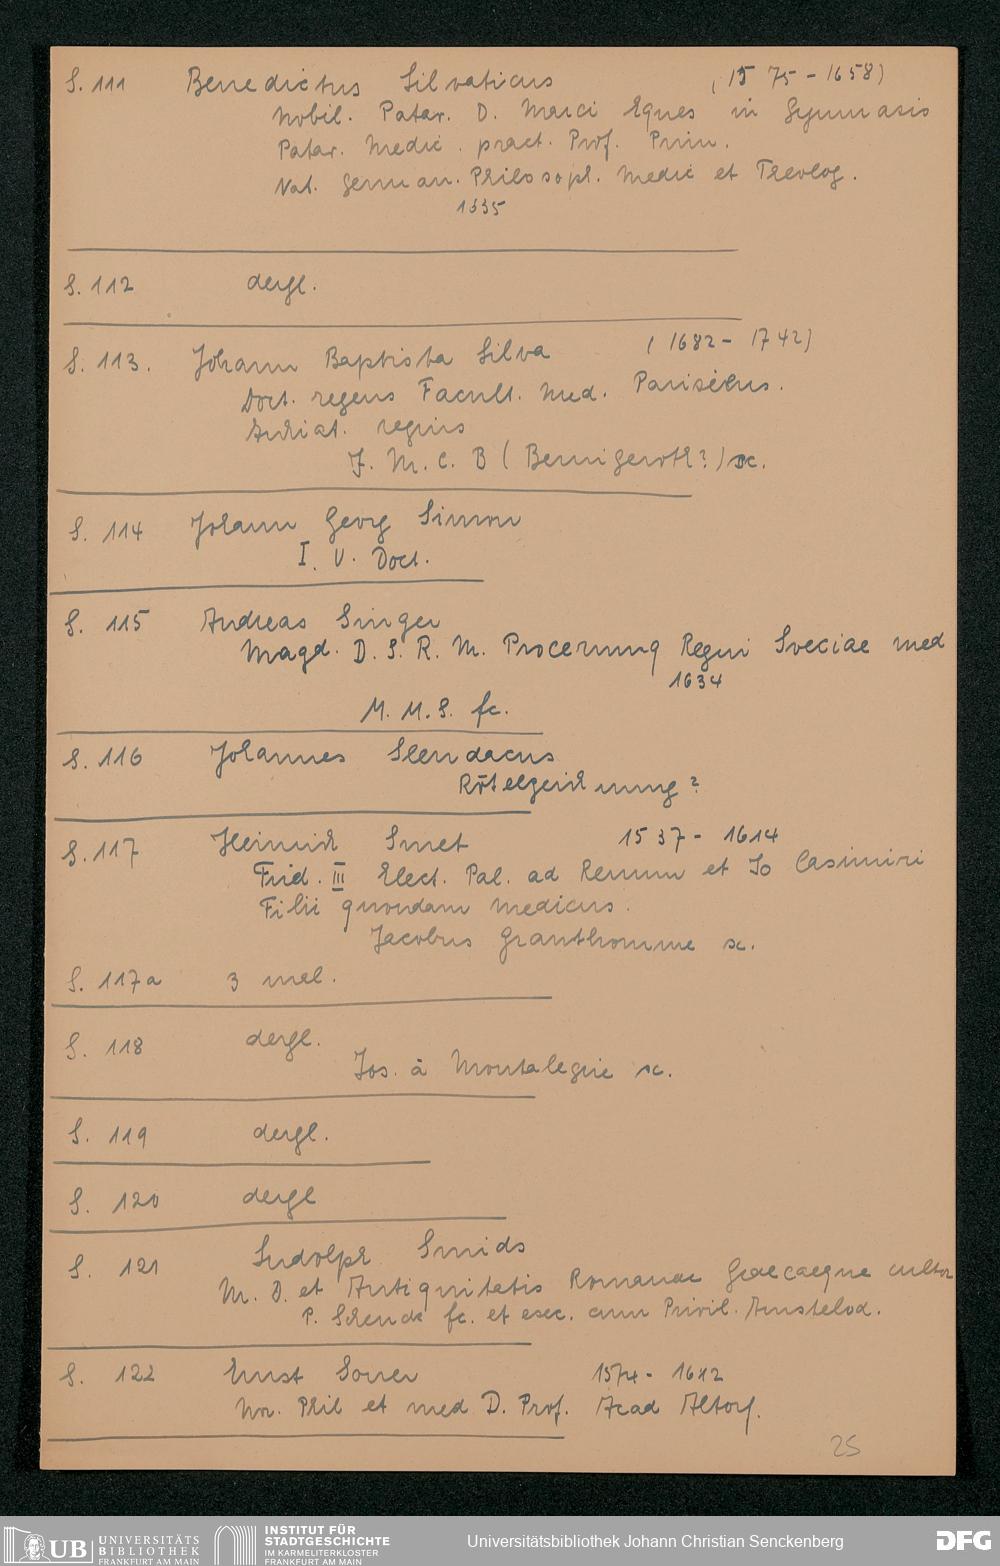 S. 111 Benedictus Silvaticus (1575-1658)
Nobil. Patav. D. Marci Eques in Gymnasio
Patav. Medic. pract. Prof. Prim.
Nat. German. Philosoph. Medic et Theolog.
1335
S. 112 dergl.
S. 113. Johann Baptista Silva (1682-1742)
Doct. regens Facult. Med. Parisiens.
Archiat. regius
J. M. C. B (Bernigeroth?) sc.
S. 114 Johann Georg Simon
I. V. Doct.
S. 115 Andreas Singer
Magd. D. S. R. M. Procerumq Regni Sveciae med
1634
M. M. S. fc.
S. 116 Johannes Slendacus
Rötelzeichnung?
S. 117 Heinrich Smet 1537-1614
Frid. III Elect. Pal. ad Renum et Jo Casimiri
Filii quondam medicus.
Jacobus Granthomme sc.
S. 117a 3 mal.
S. 118 dergl.
Jos. à Montalegrie sc.
S. 119 dergl.
S. 120 dergl
S. 121 Ludolph Smids
M. D. et Antiquitatis Romanae Graecaeque cultor
P. Schenck fc. et exc. cum Privil. Amstelod.
S. 122 Ernst Soner 1574-1612
Nor. Phil et med D. Prof. Acad Altorf.
25
UB UNIVERSITÄTS
BIBLIOTHEK
FRANKFURT AM MAIN
INSTITUT FÜR
STADTGESCHICHTE
IM KARMELITERKLOSTER
FRANKFURT AM MAIN
Universitätsbibliothek Johann Christian Senckenberg
DFG